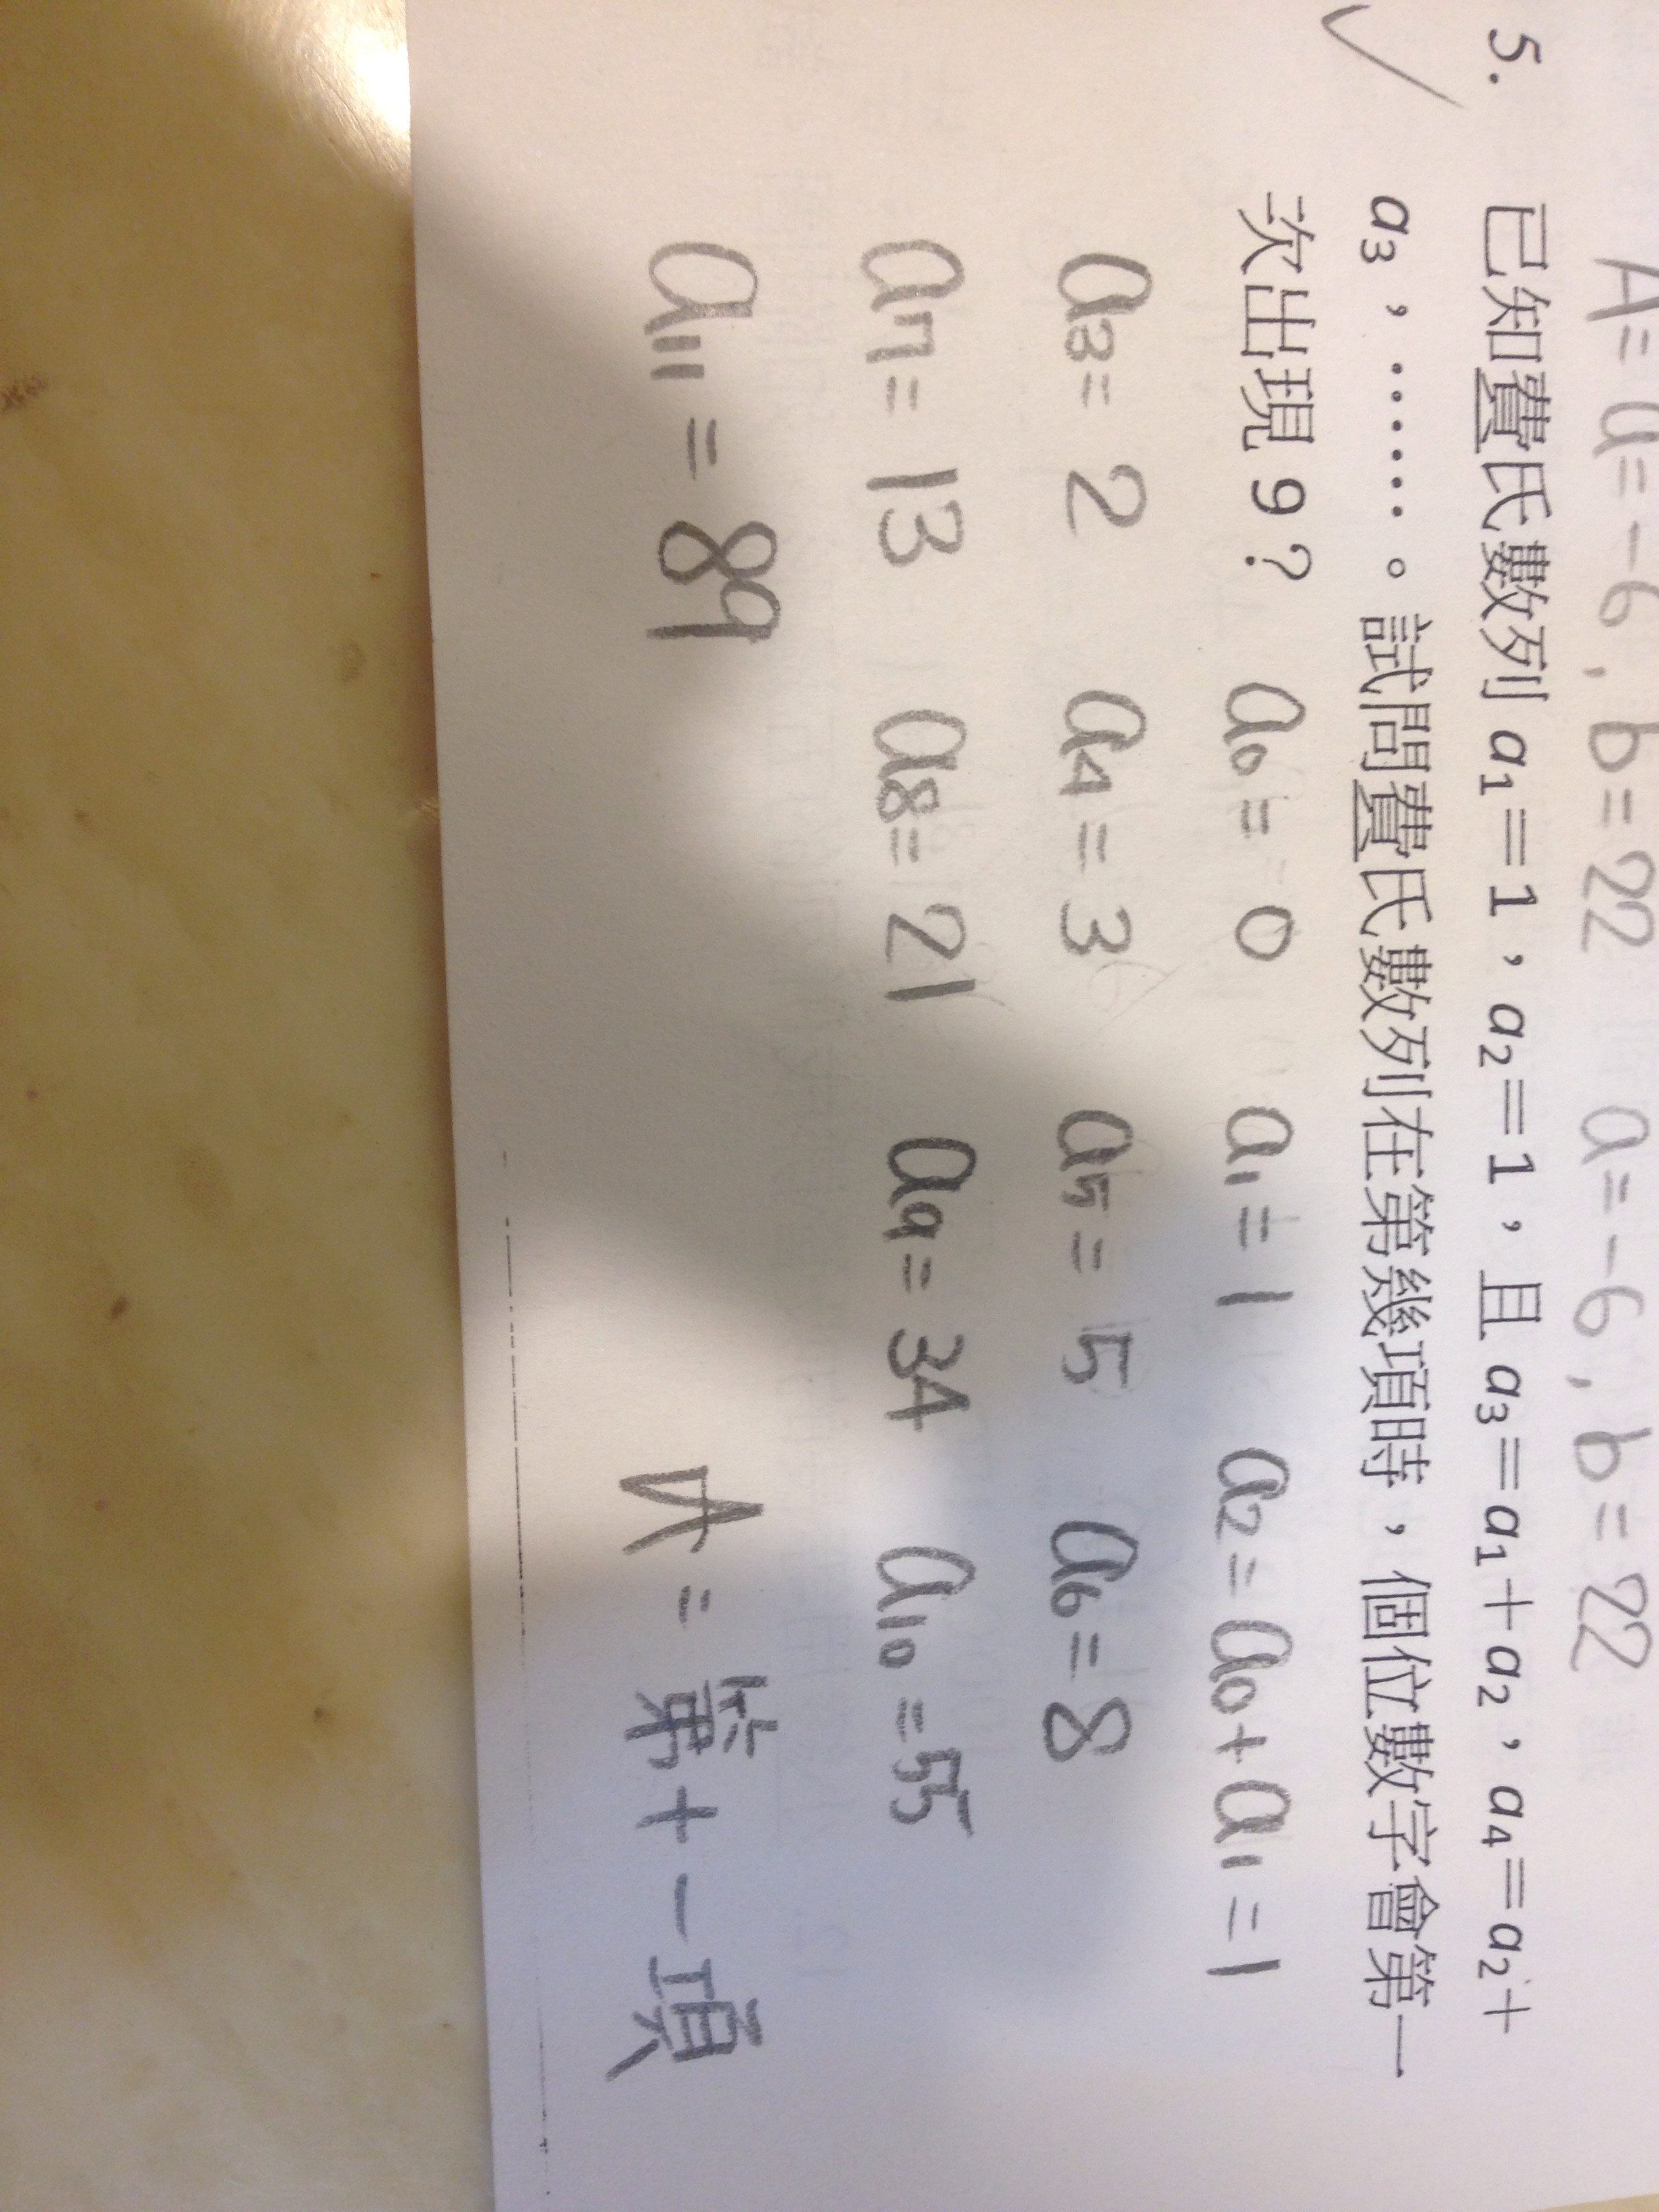 A = a = -6, b = 22 a = -6, b = 22
5. 已知費氏數列 a₁＝1，a₂＝1，且 a₃＝a₁＋a₂，a₄＝a₂＋
a₃，……。試問費氏數列在第幾項時，個位數字會第一
次出現 9？ a₀ = 0 a₁ = 1 a₂ = a₀ + a₁ = 1
a₃ = 2 a₄ = 3 a₅ = 5 a₆ = 8
a₇ = 13 a₈ = 21 a₉ = 34 a₁₀ = 55
a₁₁ = 89 A = 第十一項